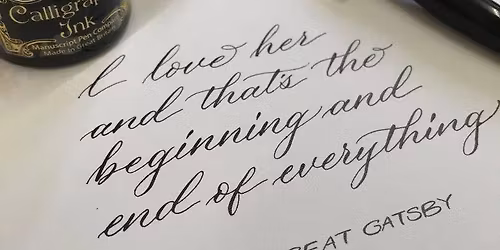 Calligrap
Ink
Manuscript Pen Comp
Made in Great Britain
I love her
and that's the
beginning and
end of everything
EAT GATSBY